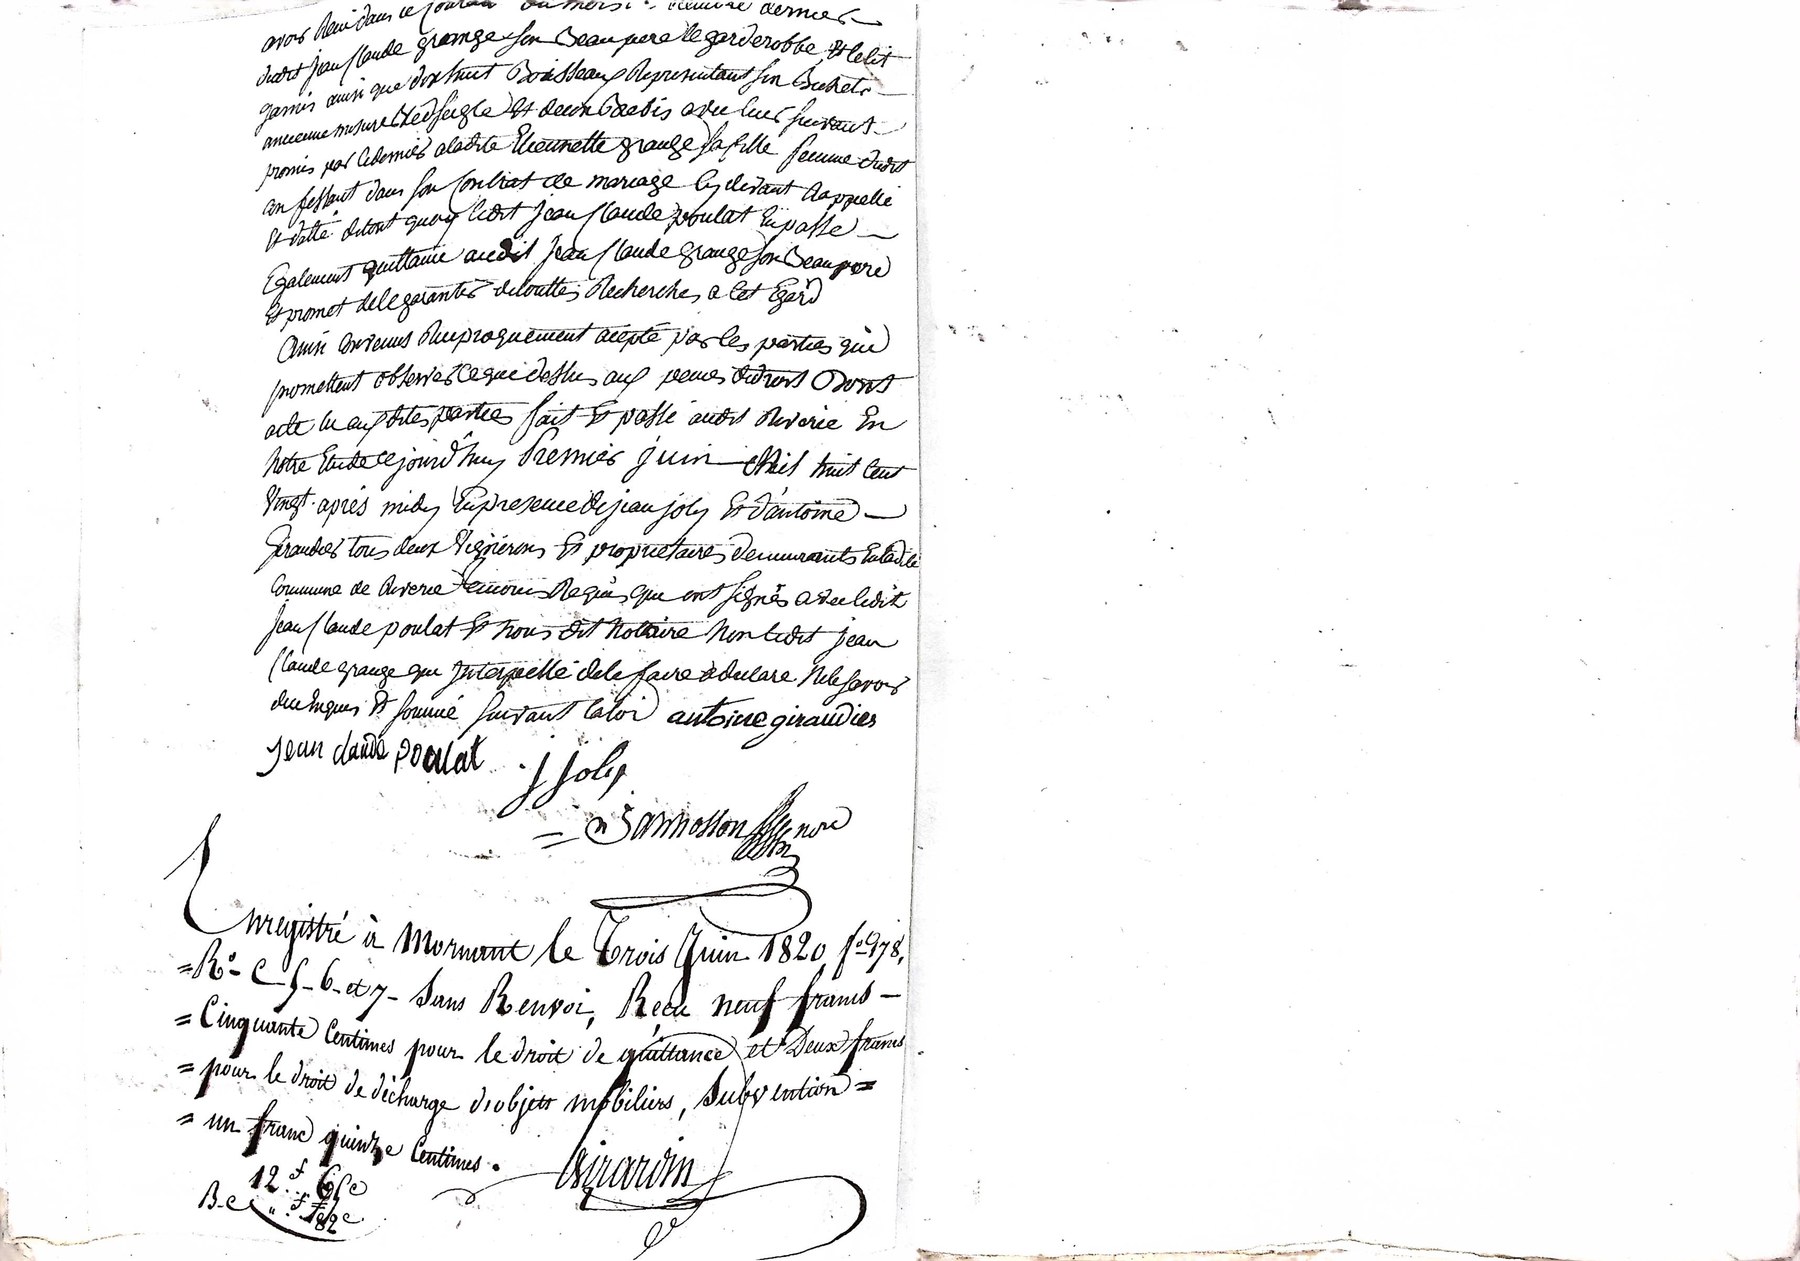 avoir Recu dans le courant du mois dernier
dudit jean Claude grange son Beau pere le garderobbe, et le lit
garnis ainsi que dixhuit Boisseaux Representant six Bichets
ancienne mesure de seigle et deux Brebis avec leur suivant
promis par ce dernier a ladite Etiennette grange sa fille femme dudit
confessant dans son Contrat de mariage Cy devant Rappellé
et datté. de tout quoy ledit jean Claude poulat En passe
Egalement quittance audit jean Claude grange son Beau pere
Et promet de le garantir de touttes Recherches a Cet Egard
Ainsi Convenus Reciproquement accepté par les parties qui
promettent observer ce que dessus aux peines de droit Dont
acte lu auxdites parties fait Et passé audit Riverie En
Notre Etude ce jourd'huy Premier juin Mil huit Cent
Vingt. après midy En presence de jean joly Et d'antoine
Giraudier tous deux Vignerons Et proprietaires demeurants En ladite
Commune de Riverie temoins Requis, qui ont signés avec ledit
Jean Claude poulat Et Nous dit Nottaire Non ledit jean
Claude grange qui Interpellé de le faire a declaré Ne le savoir
de ce Enquis Et sommé suivant la loi antoine giraudier
jean claude poulat J Joly
Jannosson nore
Enregistré à Mornant le Trois Juin 1820, fo 178,
Ro C 5 - 6 - et 7 - Sans Renvoi, Reçu neuf francs
Cinquante Centimes pour le droit de quittance et Deux francs
pour le droit de décharge d'objets mobiliers, Subvention
un franc quinze Centimes. Girardin
12 f 65 c
B. C. " f 82 c